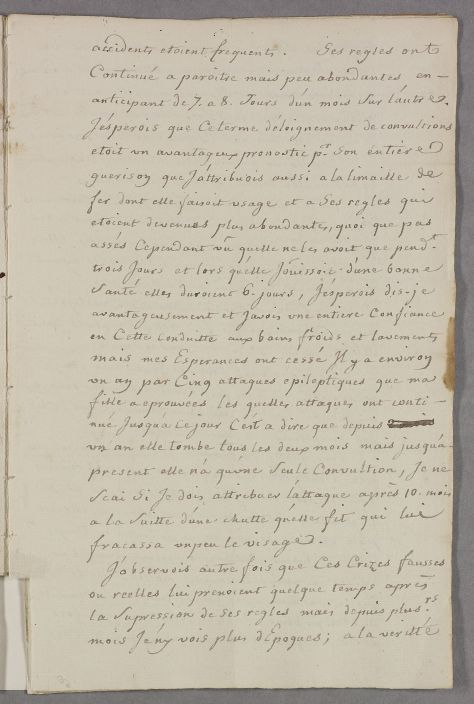 accidents etoient frequents. Ses regles ont
Continué a paroitre mais peu abondantes en-
anticipant de 7. a 8. Jours d'un mois sur lautre.
J'ésperois que Ce terme déloignement de convultions
etoit un avantageux pronostic pr. son entiere
guerison que J'attribuois aussi a la limaille de
fer dont elle faisoit usage et a ses regles qui
etoient devenues plus abondantes, quoi que pas
assés Cependant vu quelle ne les avoit que pendt.
trois Jours et lors quélle Joüissoit d'une bonne
Santé elles duroient 6. jours, J'ésperois dis-je
avantageusement et Javois une entiere Confiance
en Cette conduitte aux bains froids et lavements
mais mes Esperances ont cessé Il y a environ
un an par Cinq attaques epileptiques que ma
fille a eprouvées les quelles attaques ont conti-
nué Jusqua ce jour C'est a dire que depuis
un an elle tombe tous les deux mois mais jusquá-
present elle n'a qu'une Seule Convultion, Je ne
Scai Si Je dois attribuer l'attaque aprés 10. mois
a la Suitte d'une chutte quélle fit qui lui
fracassa un peu le visage.
J'observois autre fois que Ces Crizes fausses
ou reelles lui prenoient quelque temps aprés
la Supression de ses regles mais depuis plusrs.
mois Je n'y vois plus d'Epoques; a la verité